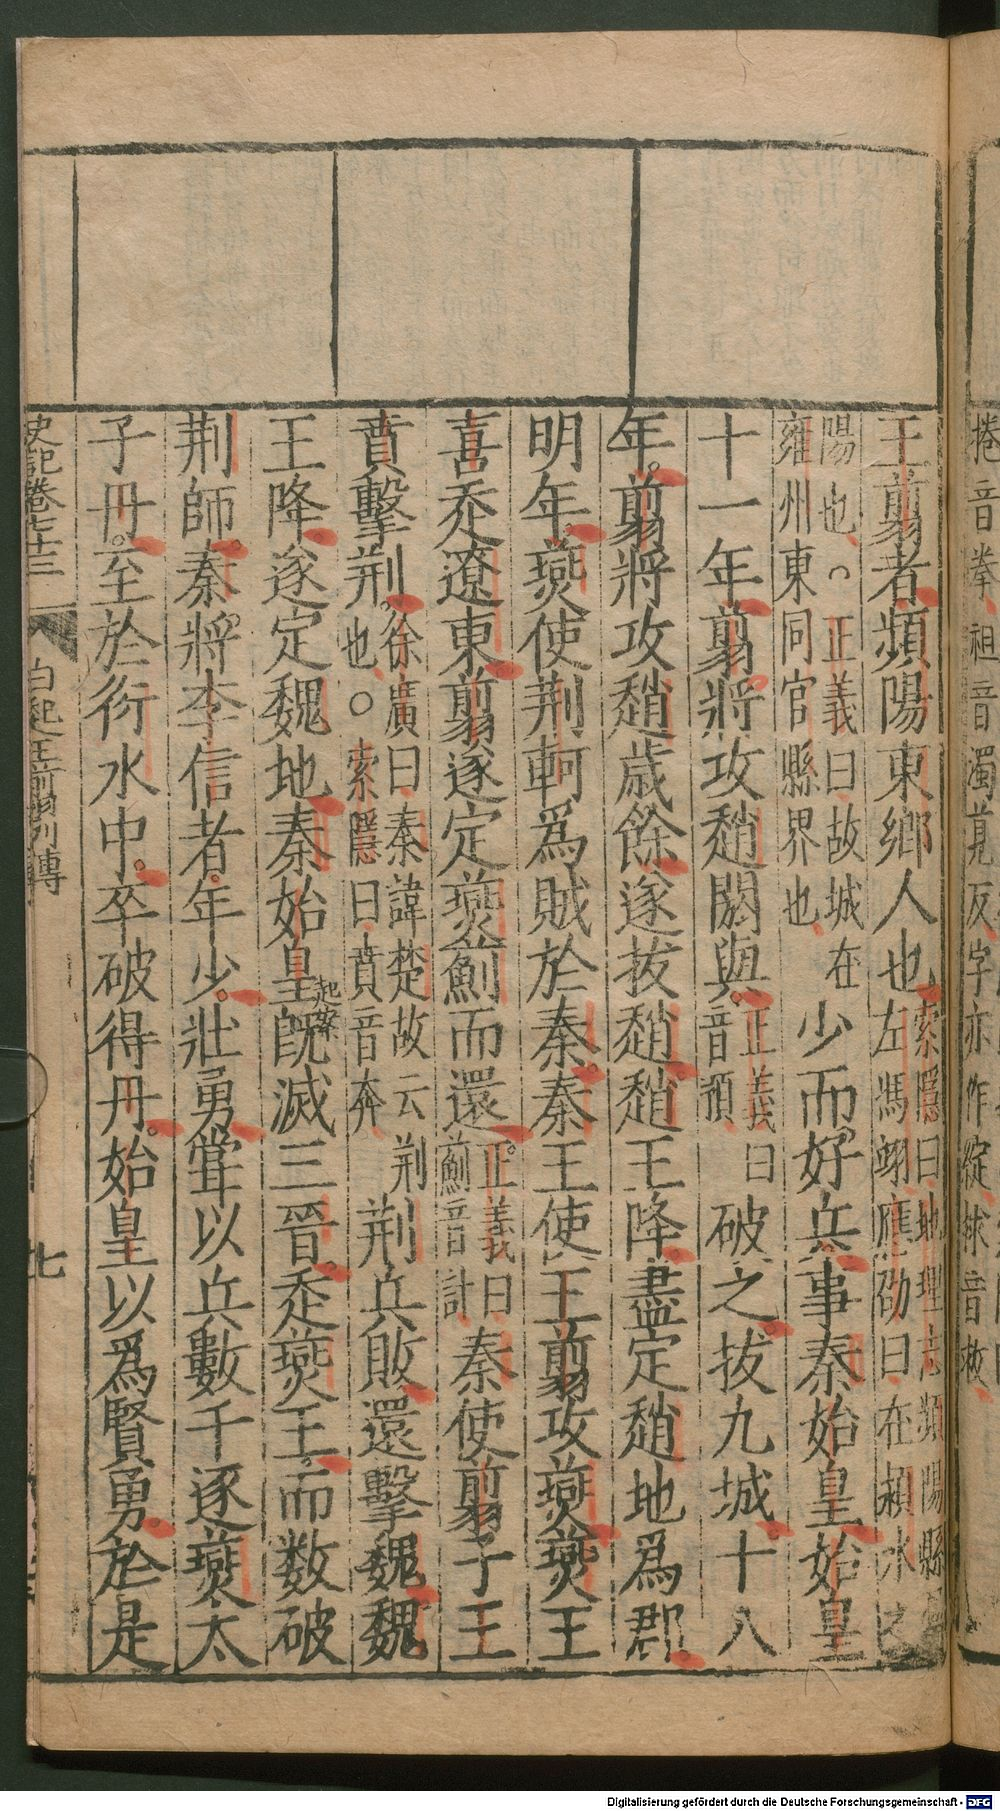 王翦者頻陽東鄉人也索隱曰地理志頻陽縣左馮翊應劭曰在頻水之
陽也○正義曰故城在雍州東同官縣界也少而好兵事秦始皇始皇
十一年翦將攻趙閼與正義曰音預破之拔九城十八
年翦將攻趙歲餘遂拔趙趙王降盡定趙地爲郡
明年燕使荆軻爲賊於秦秦王使王翦攻燕燕王
喜走遼東翦遂定燕薊而還正義曰薊音計秦使翦子王
賁擊荆徐廣曰秦諱楚故云荆也○索隱曰賁音奔荆兵敗還擊魏魏
王降遂定魏地秦始皇既滅三晉走燕王而数破
起案
荆師秦將李信者年少壯勇甞以兵數千逐燕太
子丹至於衍水中卒破得丹始皇以爲賢勇於是
史記卷七十三
白起王翦列傳
七
捲音拳祖音濁莧反字亦作綻捄音救
Digitalisierung gefördert durch die Deutsche Forschungsgemeinschaft - DFG